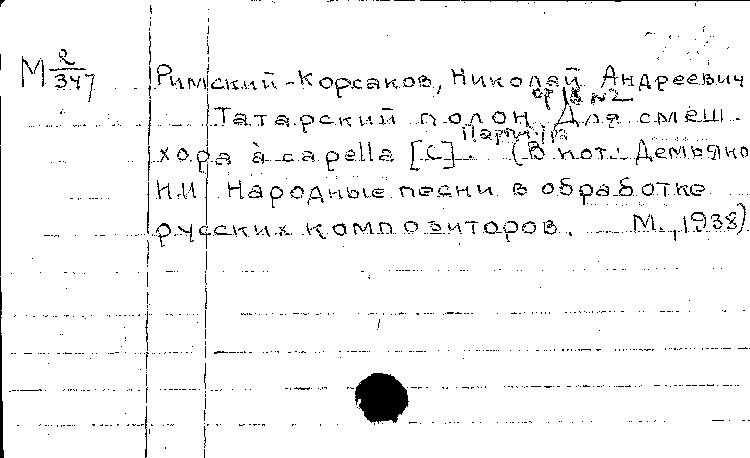 М 2/347
Римский-Корсаков, Николай Андреевич
ор 18 №2
Татарский полон Для смеш.
Партитура
хора à capella [C]. (В кот.: Демьяно
Н.И Народные песни в обработке
русских композиторов. М., 1938)